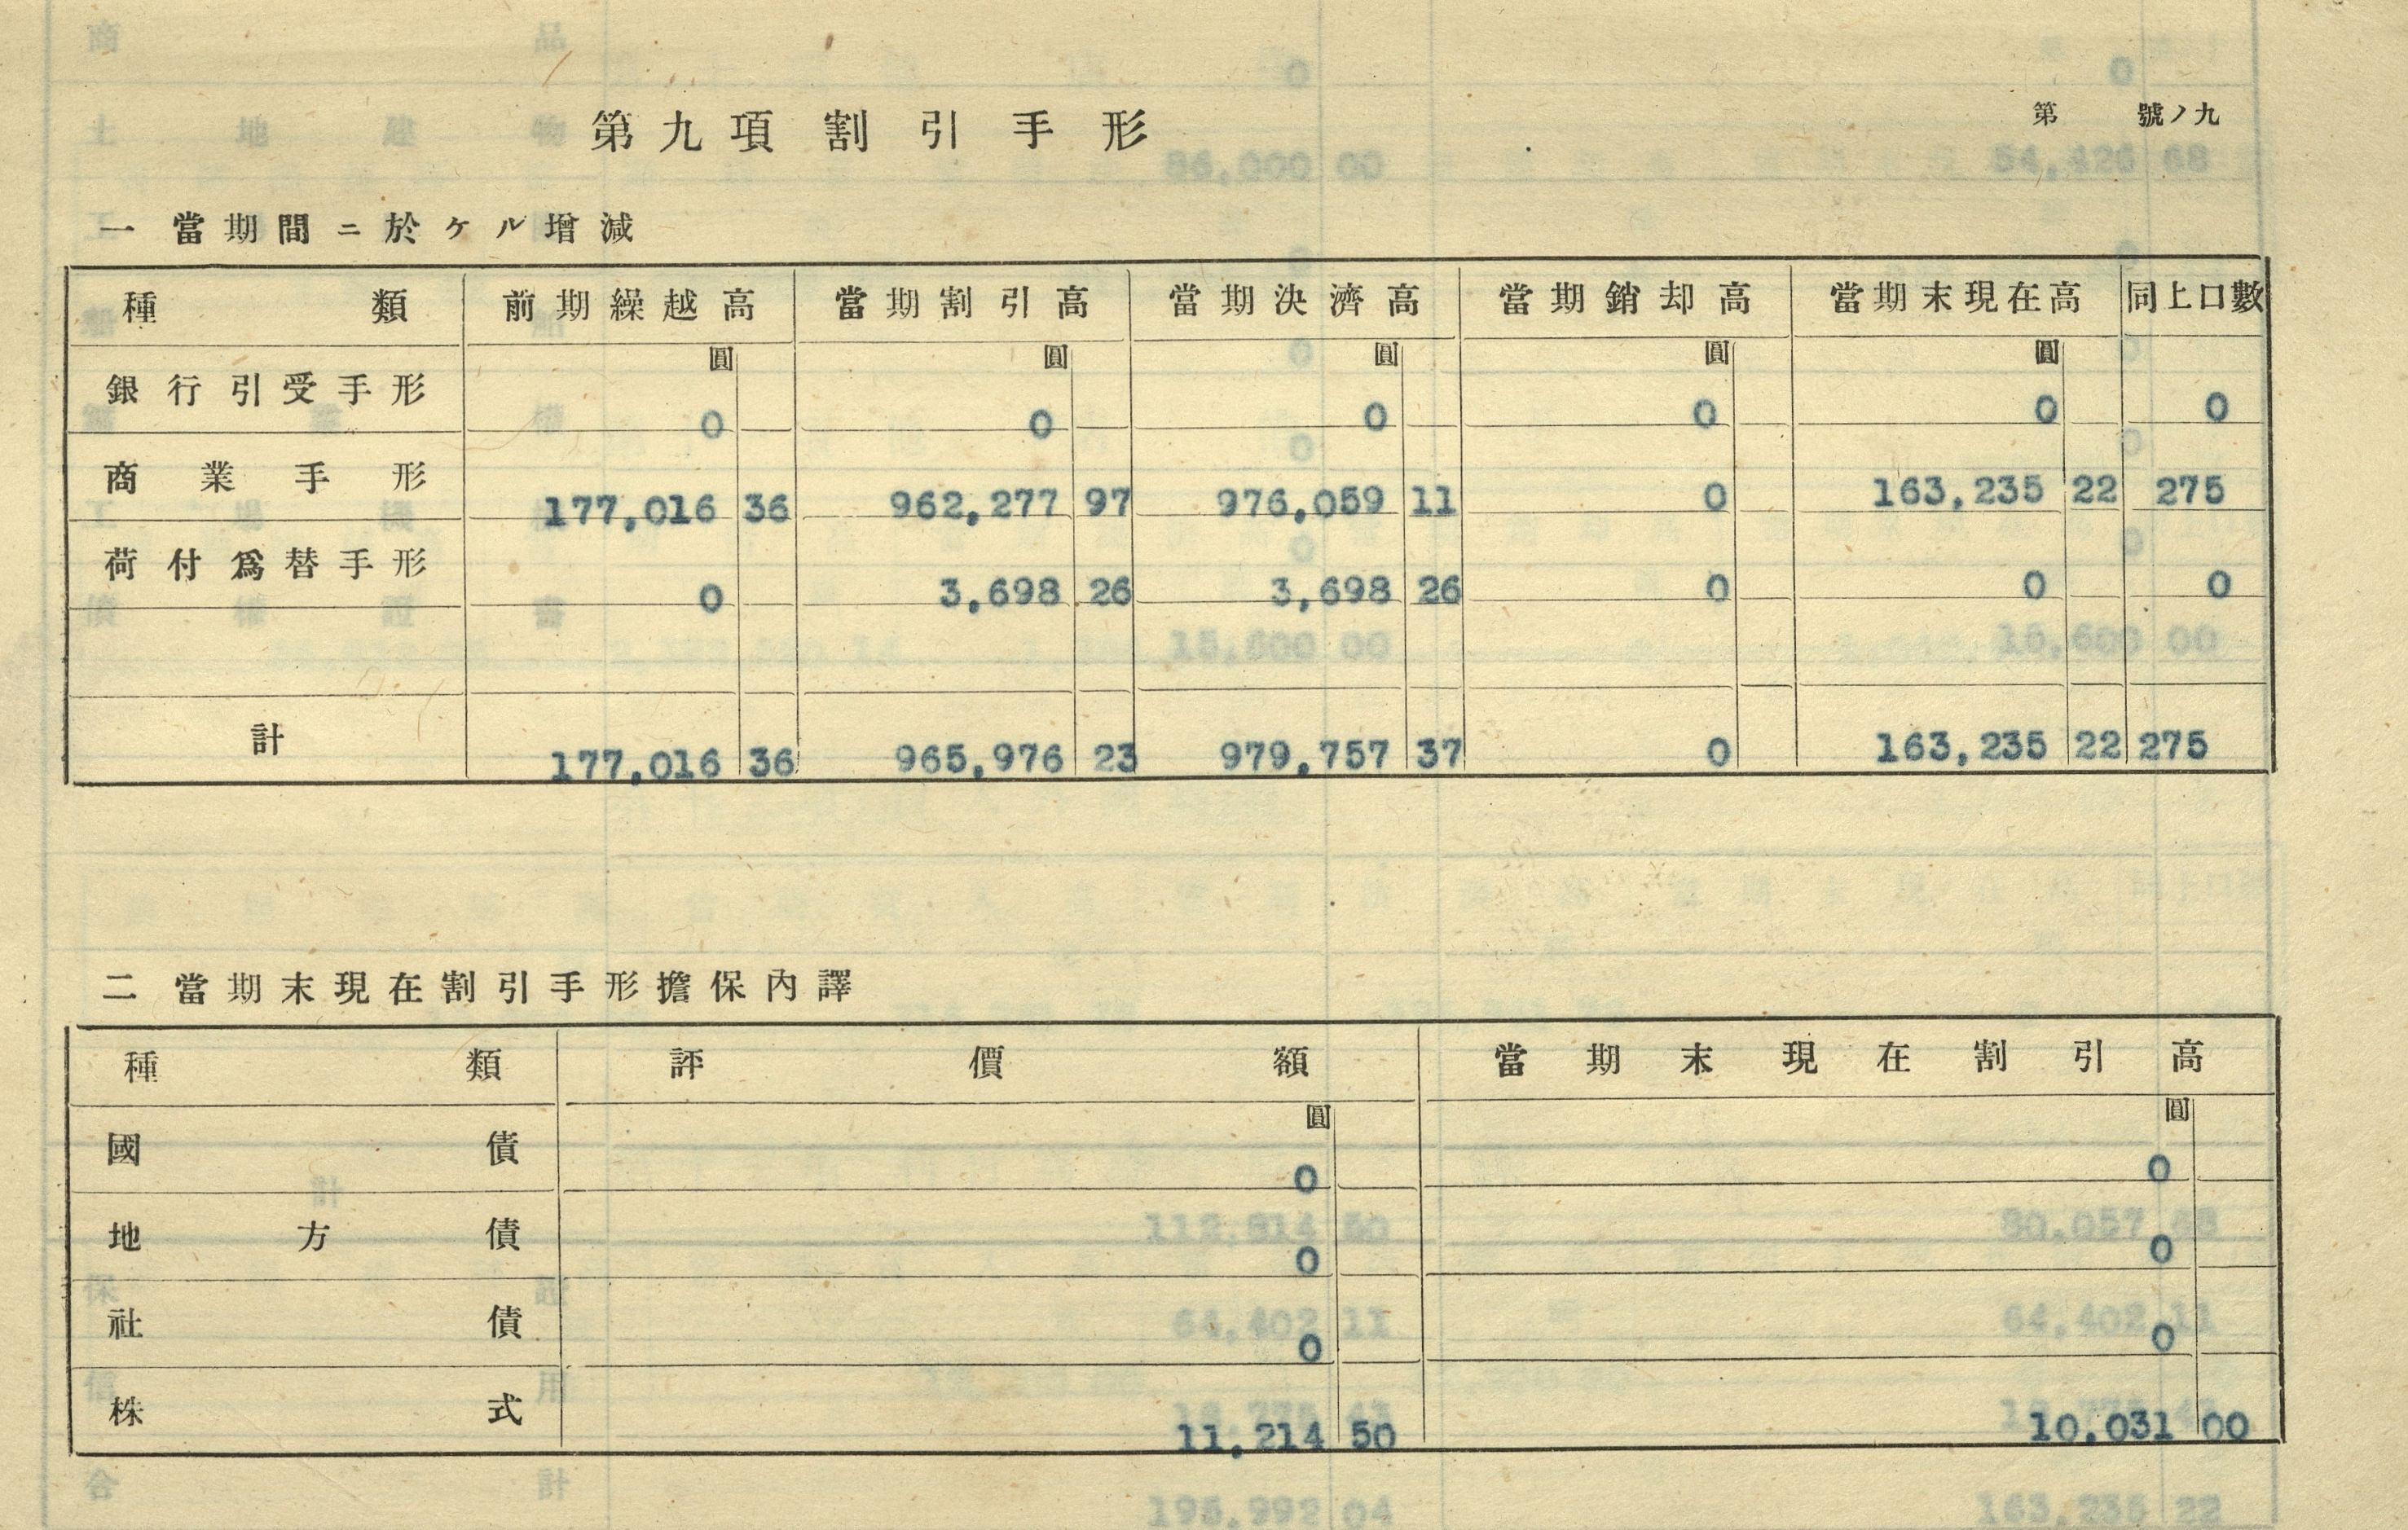 第九項 割引手形
第 號ノ九
一 當期間ニ於ケル増減
種類 前期繰越高 當期割引高 當期決濟高 當期銷却高 當期末現在高 同上口數
圓 圓 圓 圓 圓
銀行引受手形 0 0 0 0 0 0
商業手形 177,016 36 962,277 97 976,059 11 0 163,235 22 275
荷付爲替手形 0 3,698 26 3,698 26 0 0 0
計 177,016 36 965,976 23 979,757 37 0 163,235 22 275
二 當期末現在割引手形擔保內譯
種類 評價額 當期末現在割引高
圓 圓
國債 0 0
地方債 0 0
社債 0 0
株式 11,214 50 10,031 00